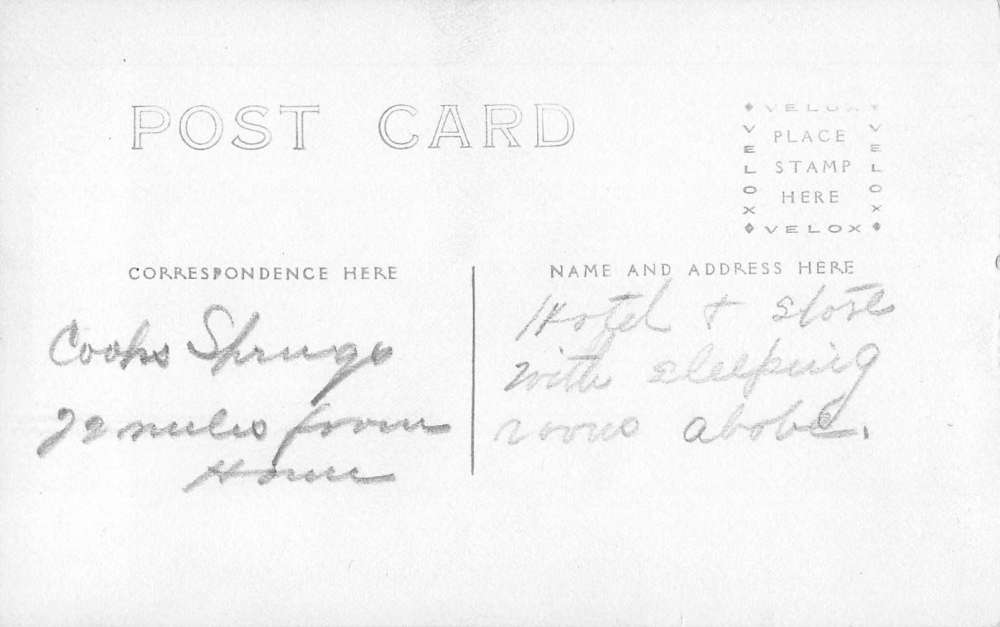 POST CARD
VELOX
VELOX
PLACE
STAMP
HERE
VELOX
VELOX
CORRESPONDENCE HERE
NAME AND ADDRESS HERE
Cooks Springs
72 miles from
Home
Hotel + store
with sleeping
rooms above.